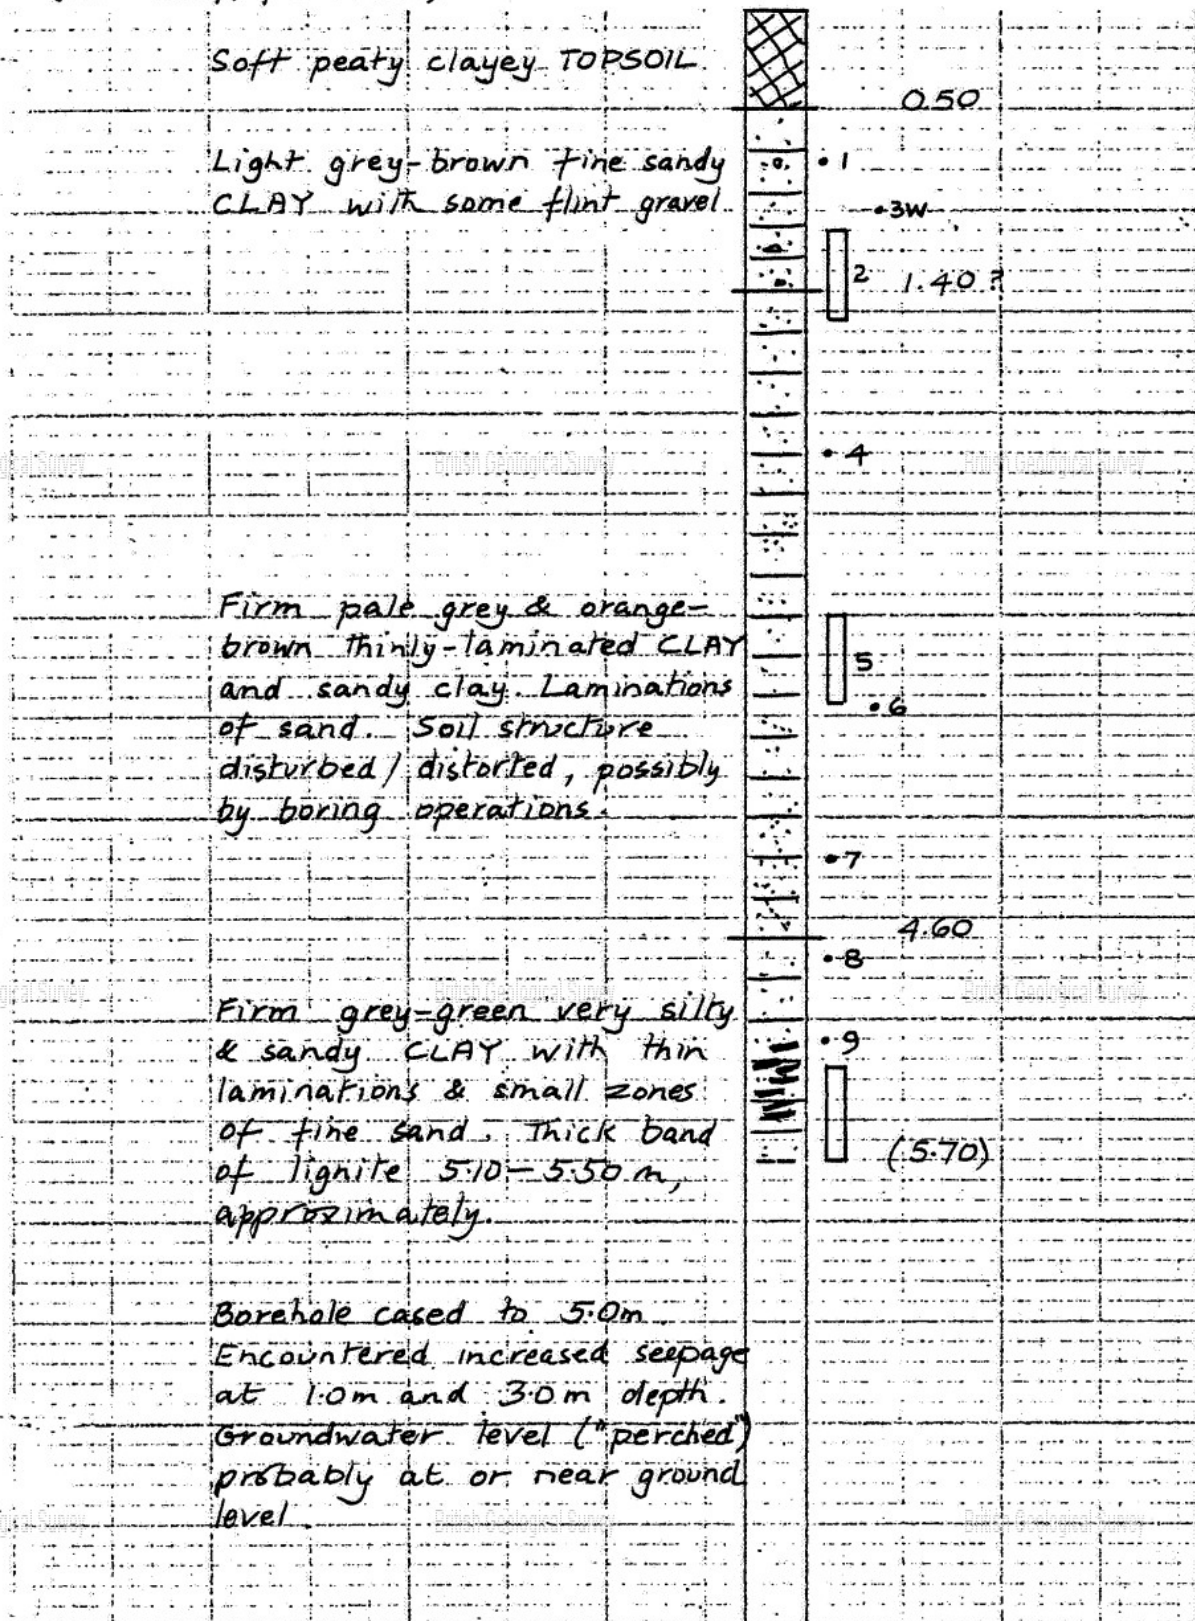 Soft peaty clayey TOPSOIL.
0.50
Light grey-brown fine sandy
CLAY with some flint gravel
1
3W
2
1.40?
British Geological Survey
4
Firm pale grey & orange-
brown thinly-laminated CLAY
and sandy clay. Laminations
of sand. Soil structure
disturbed / distorted, possibly
by boring operations.
5
6
7
4.60
8
British Geological Survey
Firm grey-green very silty
& sandy CLAY with thin
laminations & small zones
of fine sand. Thick band
of lignite 5.10-5.50 m,
approximately.
9
(5.70)
Borehole cased to 5.0m.
Encountered increased seepage
at 1.0m and 3.0m depth.
Groundwater level ("perched")
probably at or near ground
level.
British Geological Survey